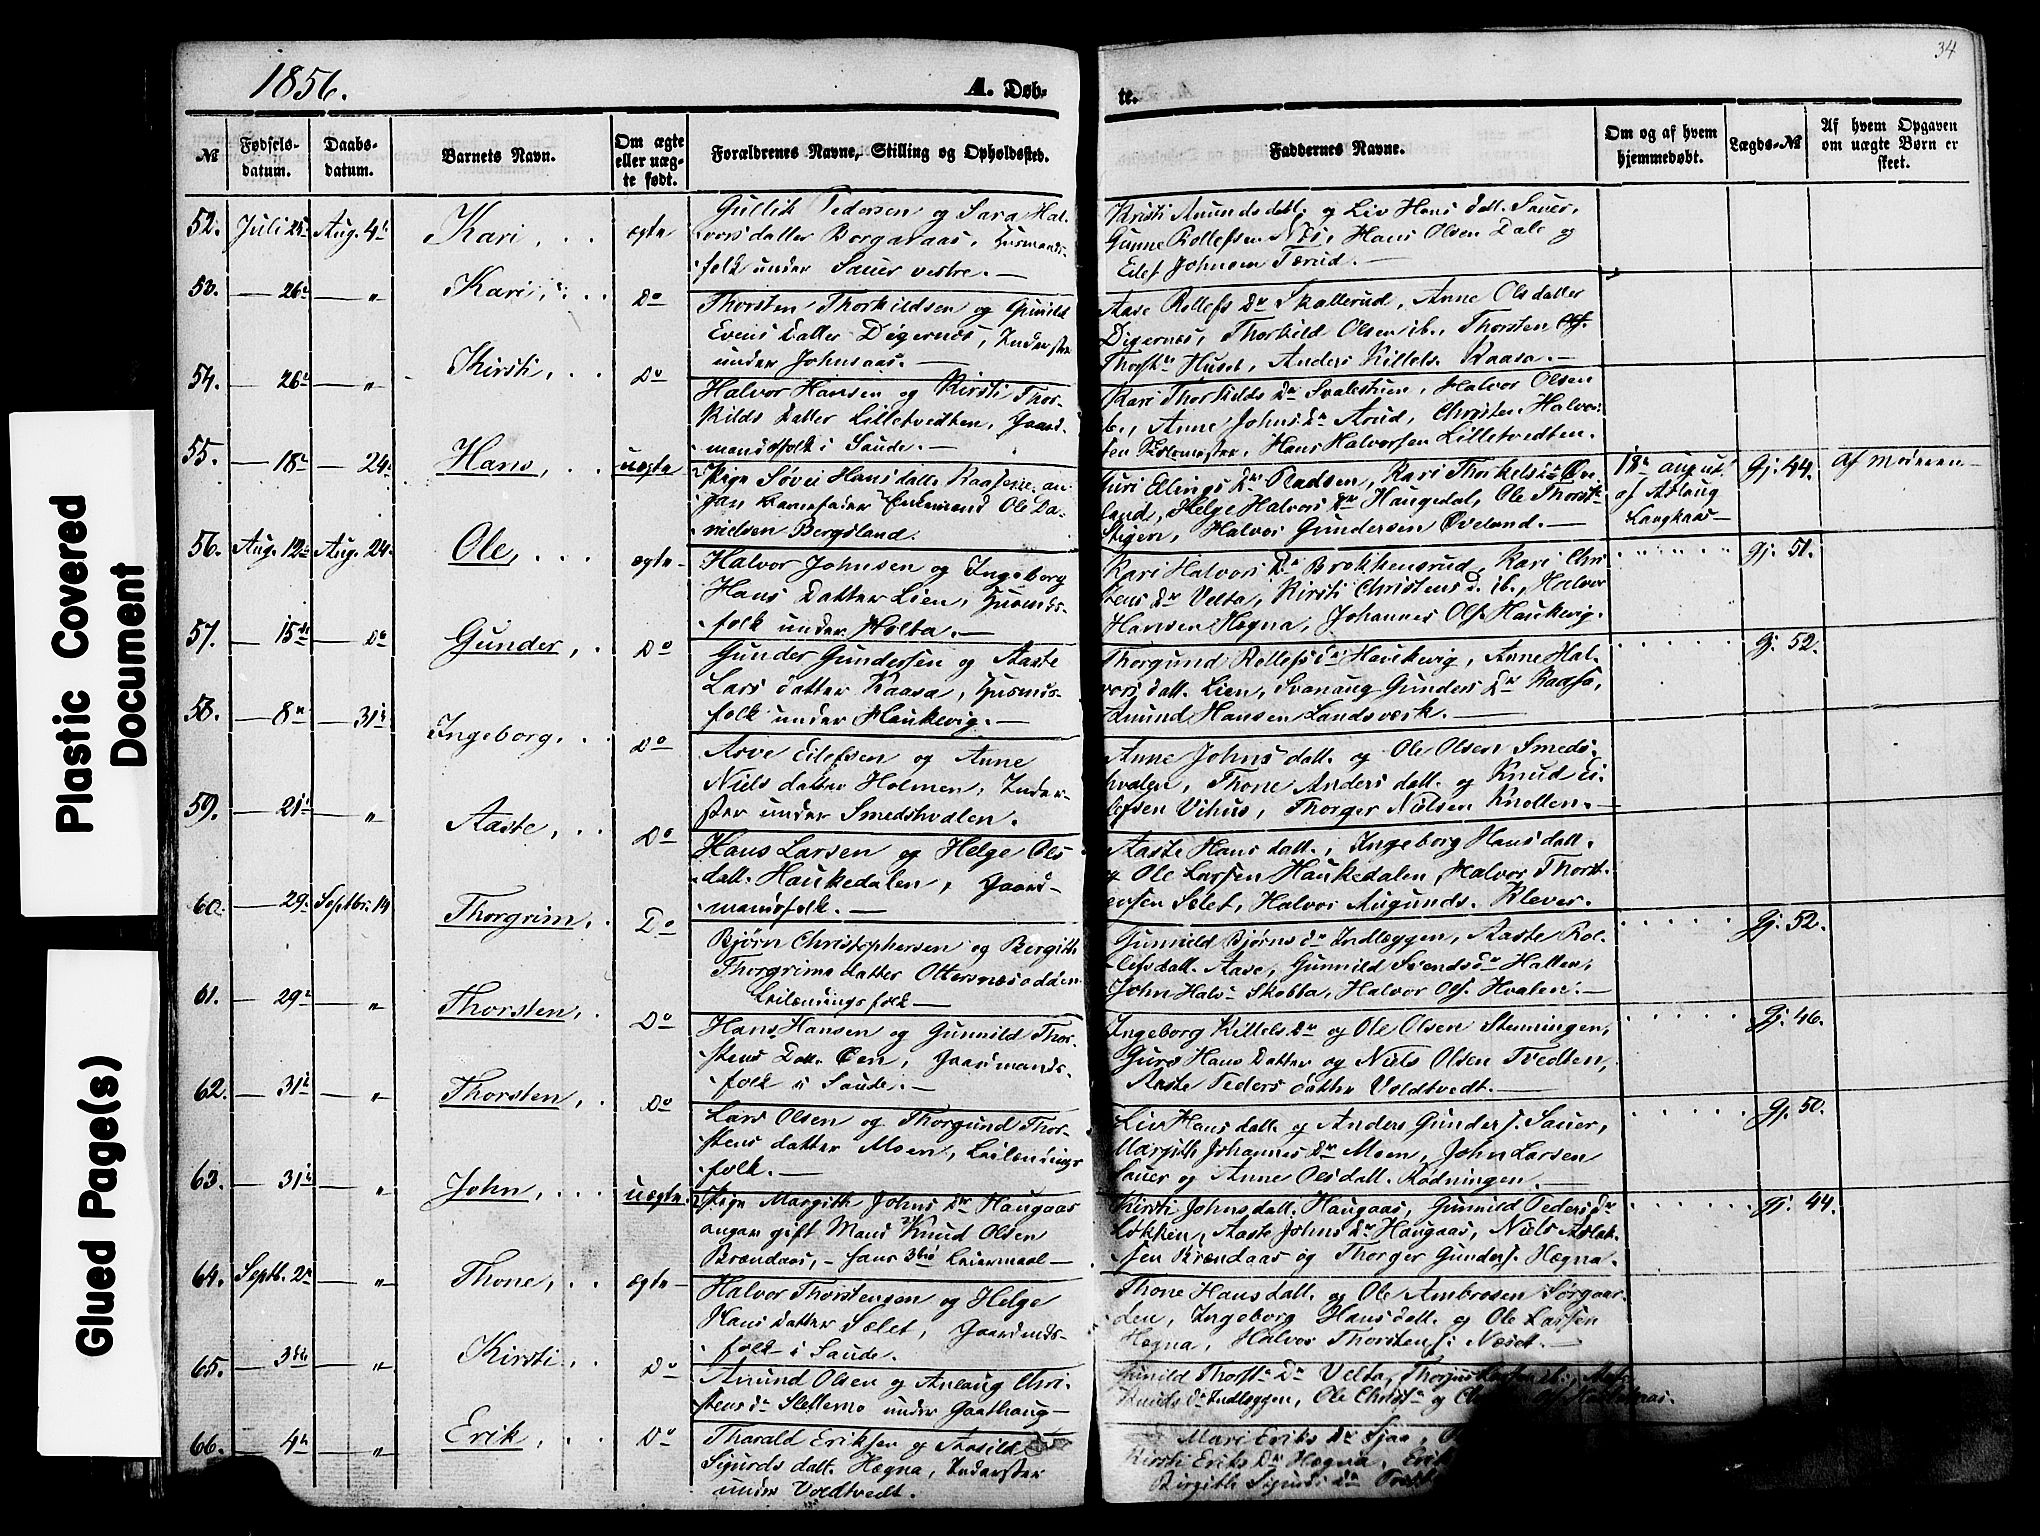 34
1856.
A. Døb-
te.
№
Fødsels-
datum.
Daabs-
datum.
Barnets Navn.
Om ægte
eller uæg-
te født.
Forældrenes Navne, Stilling og Opholdssted.
Faddernes Navne.
Om og af hvem
hjemmedøbt.
Lægds-№
Af hvem Opgaven
om uægte Børn er
skeet.
52. Juli 25 Aug. 4 Kari, ægte
Gullik Pedersen og Sara Hal-
vorsdatter Borgaraas, Husmands-
folk under Sauer vestre.
Kirsti Amunds datt. og Liv Hans datt. Sauer,
Gunne Rollefsen Næs, Hans Olsen Dale og
Eilef Johnsen Tærud.
53. 26 " Kari, Do
Thorsten Thorkildsen og Gunild
Evens Datter Digernes, Inderster
under Johnsaas.
Aase Rollefs Dr Skallerud, Anne Olsdatter
Digernes, Thorkild Olsen ib., Thorsten
Huset, Anders Kittels. Kaasa.
54. 26 " Kirsti, Do
Halvor Hansen og Kirsti Thor-
kilds Datter Lilletvedten, Gaard-
mandsfolk i Saude.
Kari Thorkilds Dr Svalestuen, Halvor Olsen
ib., Anne Johns Dr Aarud, Christen Halvor-
sen, Hans Halvorsen Lilletvedten.
55. 18 24 Hans, uægte
Pige Søvei Hans datt. Kaasene an-
gav Barnefader Enkemand Ole Da-
nielsen Bergsland.
Guri Ellings Dr Pladsen, Kari Thorkels Dr Øve-
land, Helge Halvors Dr Haugedal, Ole Thorst.
Stigen, Halvor Gundersen Øveland.
18 august
af Aslaug
Langkaas
Gj. 44.
Af Moderen
56. Aug. 12 Aug. 24 Ole, ægte
Halvor Johnsen og Ingeborg
Hans Datter Lien, Husmds-
folk under Holta.
Kari Halvors Dr Brekkensrud, Kari Chri-
stens Dr Velta, Kirsti Christens D. ib., Halvor
Hansen Hægna, Johannes Ols. Haukevig.
Gj. 51.
57. 15 Do Gunder, Do
Gunder Gundersen og Aaste
Lars datter Kaasa, Husmds-
folk under Haukevig.
Thorgund Rollefs Dr Haukevig, Anne Hal-
vors datt. Lien, Svanaug Gunders Dr Kaasa,
Amund Hansen Landsværk.
Gj. 52.
58. 8 31 Ingeborg, Do
Arve Eilefsen og Anne
Niels datter Holmen, Inder-
ster under Smedshvalen.
Anne Johns datt. og Ole Olsen Smeds-
hvalen, Thone Anders datt. og Knud Ei-
lefsen Vihus, Thorger Nielsen Knollen.
59. 21 " Aaste, Do
Hans Larsen og Helge Ols
datt. Haukedalen, Gaard-
mandsfolk.
Aaste Hans datt., Ingeborg Hans datt.
og Ole Larsen Haukedalen, Halvor Thorst-
ensen Sælet, Halvor Augunds. Klever.
60. 29 Septbr. 14 Thorgrim, Do
Bjørn Christophersen og Bergith
Thorgrims datter Ottersnesodden
Leilændingsfolk
Gunnild Bjørns Dr Indlæggen, Aaste Rol-
lefsdatt. Aase, Gunnild Svends Dr Hallen,
John Hals. Skobba, Halvor Ols. Hvalen.
Gj. 52.
61. 29 " Thorsten, Do
Hans Hansen og Gunnild Thor-
stens Datt. Øen, Gaardmands-
folk i Saude.
Ingeborg Kittels Dr og Ole Olsen Stenningen,
Guro Hans Datter og Niels Olsen Tvedten,
Aaste Peders datter Voldtvedt.
Gj. 46.
62. 31 " Thorsten, Do
Lars Olsen og Thorgund Thor-
stens datter Moen, Leilændings
folk.
Liv Hans datt. og Anders Gunders. Sauer,
Margith Johannes Dr Moen, John Larsen
Sauer og Anne Olsdatt. Rødningen.
Gj. 50.
63. 31 " John, uægte.
Pige Margith Johns Dr Haugaas
angav gift Mand Knud Olsen
Brændaas, - hans 3die Leiermaal
Kirsti Johnsdatt. Haugaas, Gunnild Peders Dr
Løkken, Aaste Johns Dr Haugaas, Niels Aslak-
sen Brændaas og Thorger Gunders. Hægna.
Gj. 44.
64. Septb. 2 " Thone, ægte
Halvor Thorstensen og Helge
Hans datter Sælet, Gaardmds-
folk i Saude.
Thone Hans datt. og Ole Ambrosen Sørgaar-
den, Ingeborg Hans datt. og Ole Larsen
Hægna, Halvor Thorstens. Næset.
65. 3die " Kirsti, Do
Amund Olsen og Anlaug Chri-
stens Dr Slettemo under Gaathaug
Gunild Thorst. Dr Velta,
Knuds Dr Indlæggen, Ole Christ. og
66. 4 " Erik, Do
Tharald Eriksen og Aasild
Sigurds datt. Hægna, Inderster
under Voldtvedt.
Mari Eriks Dr Sjaa,
Kirsti Eriks Dr Hægna, Erik
Birgith Sigurds Dr
Plastic Covered
Document
Glued Page(s)